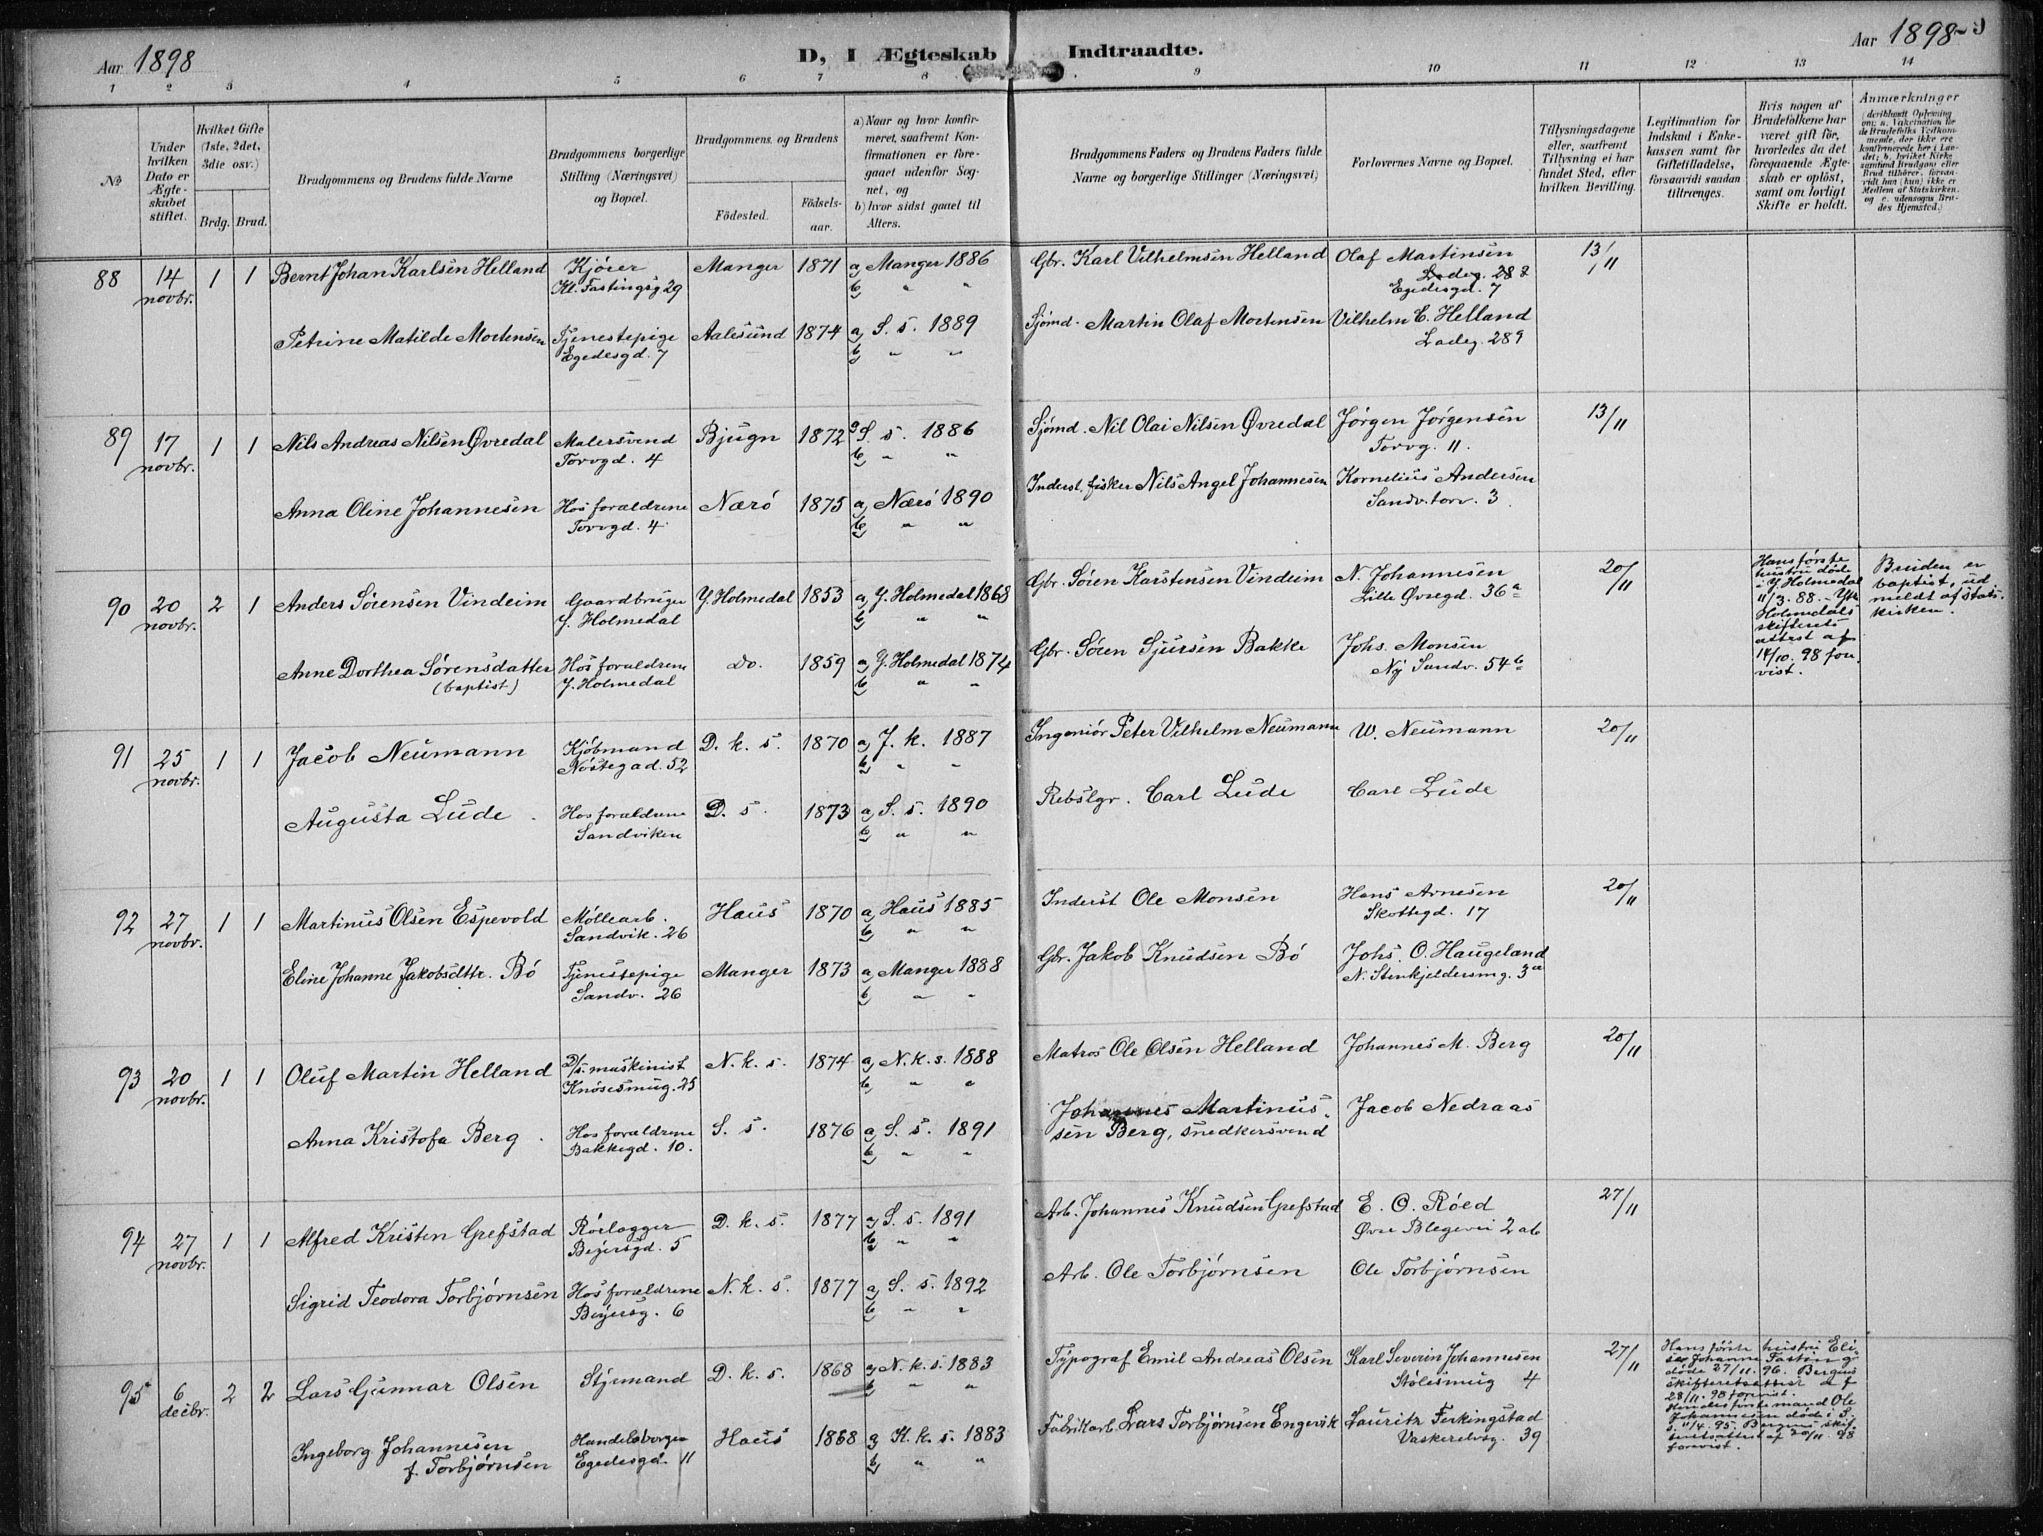 Aar 1898
D, I Ægteskab Indtraadte.
Aar 1898
1 2 3 4 5 6 7 8 9 10 11 12 13 14
No
Under hvilken Dato er Ægteskabet stiftet.
Hvilket Gifte (1ste, 2det, 3die osv.)
Brdg. Brud.
Brudgommens og Brudens fulde Navne
Brudgommens borgerlige Stilling (Næringsvei) og Bopæl.
Brudgommens og Brudens
Fødested.
Fødselsaar.
a) Naar og hvor konfirmeret, saafremt Konfirmationen er foregaaet udenfor Sognet, og
b) hvor sidst gaaet til Alters.
Brudgommens Faders og Brudens Faders fulde Navne og borgerlige Stillinger (Næringsvei)
Forlovernes Navne og Bopæl.
Tillysningsdagene eller, saafremt Tillysning ei har fundet Sted, efter hvilken Bevilling.
Legitimation for Indskud i Enkekassen samt for Giftetilladelse, forsaavidt saadan tiltrænges.
Hvis nogen af Brudefolkene har været gift før, hvorledes da det foregaaende Ægteskab er opløst, samt om lovligt Skifte er holdt.
Anmærkninger
88 14 novbr. 1 1 Bernt Johan Karlsen Helland Kjører Kl. Fastingsg 29 Manger 1871 a) Manger 1886 b) " " Gbr. Karl Vilhelmsen Helland Olaf Martinsen Ladeg. 28 Egedesgd. 7 13/11
Petrine Matilde Mortensen Tjenestepige Egedesgd. 7 Aalesund 1874 a) S. s. 1889 b) " " Sjømd. Martin Olaf Mortensen Vilhelm C. Helland Ladeg. 289
89 17 novbr. 1 1 Nils Andreas Nilsen Øvredal Malersvend Torvgd. 4 Bjugn 1872 a S. s. 1886 b) " " Sjømd. Nil Olai Nilsen Øvredal Jørgen Jørgensen Torvg. 11. 13/11
Anna Oline Johannesen Hos forældrene Torvgd. 4 Nærø 1875 a) Nærø 1890 b) " " Inderst, fisker Nils Angel Johannesen Kornelius Andersen Sandv. torv. 3
90 20 novbr. 2 1 Anders Sørensen Vindeim Gaardbruger Y. Holmedal Y. Holmedal 1853 a) Y. Holmedal 1868 b) " " Gbr. Søren Karstensen Vindeim N. Johannesen Lille Øvregd. 36a 20/11 Hans første hustru døde i Y. Holmedal 11/3. 88. - Ytr. Holmedals skifterets attest af 14/10. 98 forevist. Bruden er baptist, udmeldt af statskirken.
Anne Dorthea Sørensdatter (baptist) Hos forældrene Y. Holmedal Do. 1859 a) Y. Holmedal 1874 b) " " Gbr. Søren Sjursen Bakke Johs. Monsen Ny Sandv. 54b
91 25 novbr. 1 1 Jacob Neumann Kjøbmand Nøstegad. 52 D. k. s. 1870 a) J. k. 1887 b) " " Ingeniør Peter Vilhelm Neumann W. Neumann 20/11
Augusta Lude Hos forældrene Sandviken D. s. 1873 a) S. s. 1890 b) " " Rebslgr. Carl Lude Carl Lude
92 27 novbr. 1 1 Martinus Olsen Espevold Møllearb. Sandvik. 26 Haus 1870 a) Haus 1885 b) " " Inderst Ole Monsen Hans Arnesen Skottegd. 17 20/11
Eline Johanne Jakobsdttr. Bø Tjenestepige Sandv. 26 Manger 1873 a) Manger 1888 b) " " Gbr. Jakob Knudsen Bø Johs. O. Haugeland N. Stenkjeldersmg. 3a
93 20 novbr. 1 1 Oluf Martin Helland D/s. maskinist Knøsesmug. 25 N. k. s. 1874 a) N. k. s. 1888 b) " " Matros Ole Olsen Helland Johannes M. Berg 20/11
Anna Kristofa Berg Hos forældrene Bakkegd. 10. S. s. 1876 a) S. s. 1891 b) " " Johannes Martinussen Berg, snedkersvend Jacob Nedraas
94 27 novbr. 1 1 Alfred Kristen Grefstad Rørlægger Beyersgd. 5 D. k. s. 1877 a) S. s. 1891 b) " " Arb. Johannes Knudsen Grefstad E. O. Røed Øvre Blegevei 2ab 27/11
Sigrid Teodora Torbjørnsen Hos forældrene Beyersg. 6 N. k. s. 1877 a) S. s. 1892 b) " " Arb. Ole Torbjørnsen Ole Torbjørnsen
95 6 decbr. 2 2 Lars Gunnar Olsen Styrmand D. k. s. 1868 a) N. k. s. 1883 b) " " Typograf Emil Andreas Olsen Karl Severin Johannesen Stølesmug 4 27/11 Hans første hustru Elise Johanne Fasting døde 27/11. 96. Bergens skifteretsattest af 28/11. 98 forevist. Hendes første mand Ole Johannesen døde i S. s. 11/4. 95. Bergens skifteretsattest af 20/11. 98 forevist.
Ingeborg Johannesen f. Torbjørnsen Handelsborger Egedesgd. 11 Haus 1868 a) K. k. s. 1883 b) " " Fabrikarb. Lars Torbjørnsen Engevik Lauritz Ferkingstad Vaskerelvsg. 39